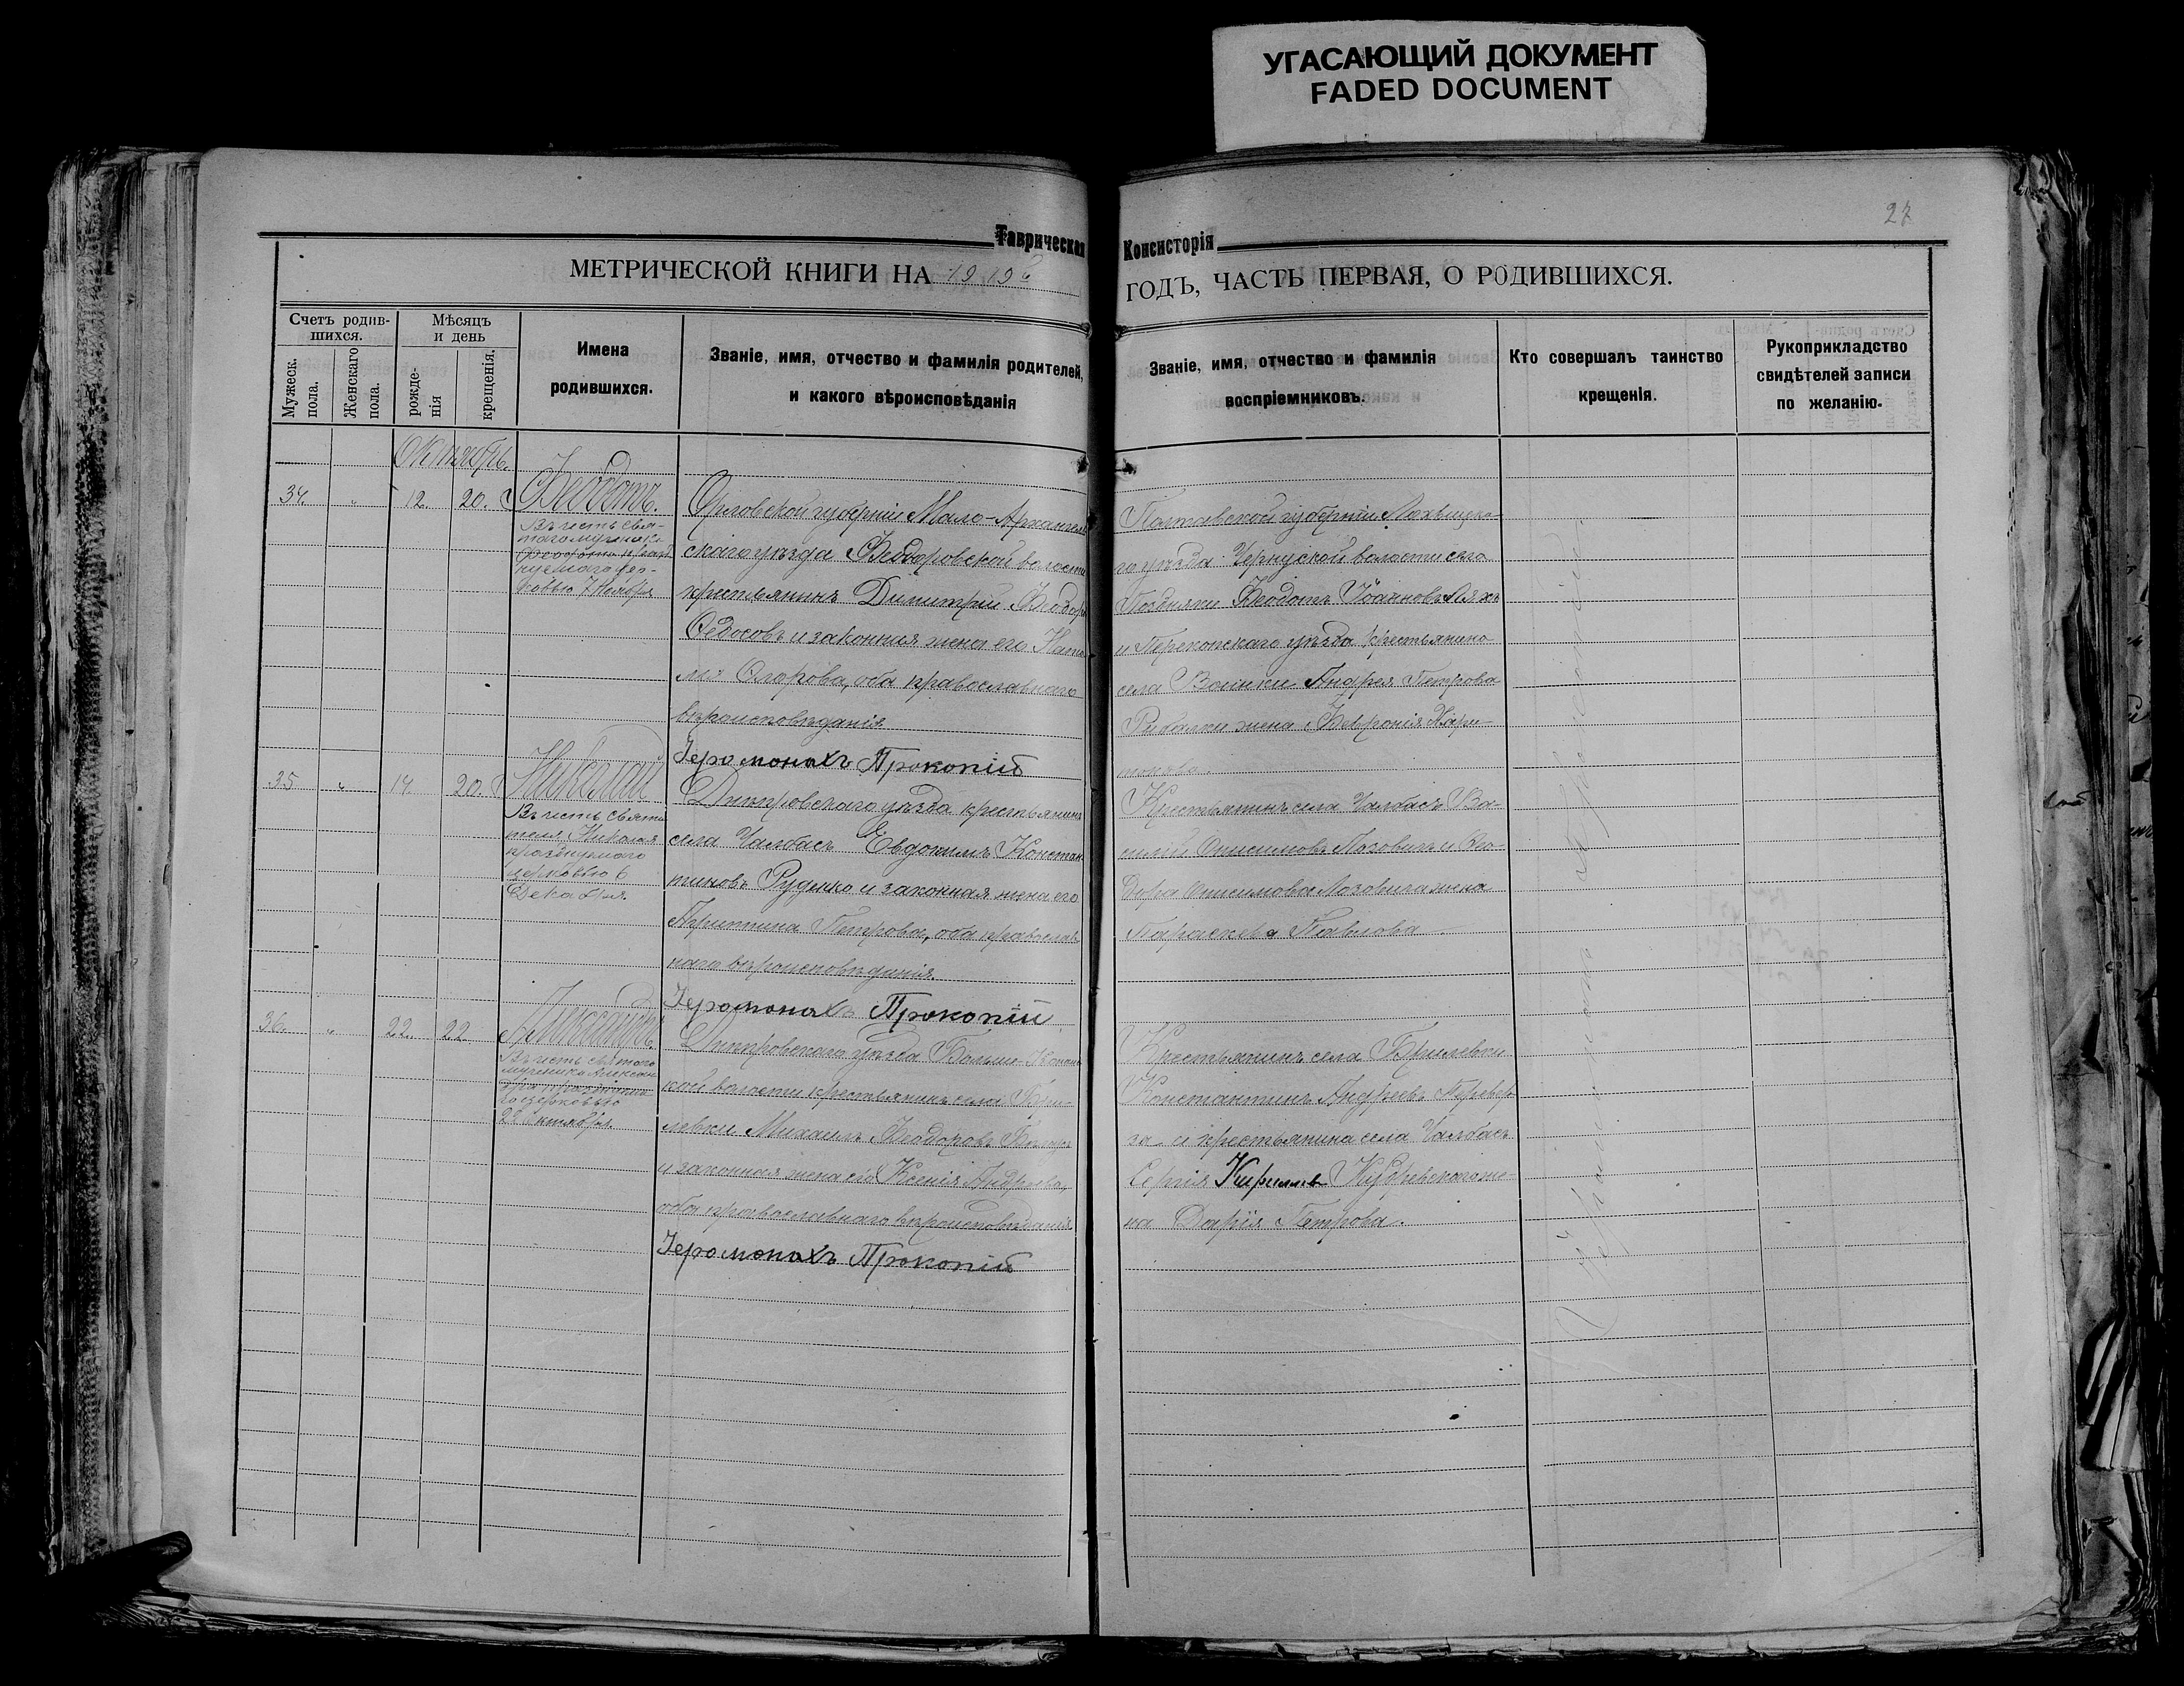 УГАСАЮЩИЙ ДОКУМЕНТ
FADED DOCUMENT
27
Таврическая Консисторія
МЕТРИЧЕСКОЙ КНИГИ НА 191
ГОДЪ, ЧАСТЬ ПЕРВАЯ, О РОДИВШИХСЯ.
Счетъ родив-
шихся.
Мужеск. пола.
Женскаго пола.
Мѣсяцъ
и день
рожде-
нія
крещенія.
Имена
родившихся.
Званіе, имя, отчество и фамилія родителей,
и какого вѣроисповѣданія
Званіе, имя, отчество и фамилія
воспріемниковъ.
Кто совершалъ таинство
крещенія.
Рукоприкладство
свидѣтелей записи
по желанію.
Октябрь.
34. " 12. 20. Ѳеодотъ.
Въ честь свя-
таго мученика
Ѳеодота празд
нуемаго цер-
ковью 7 Ноября
Орловской губерніи Мало-Архангель
скаго уѣзда Ѳеодоровской волости
крестьянинъ Димитрій Ѳеодоровъ
Ѳедосовъ и законная жена его Ната
лія Егорова, оба православнаго
вѣроисповѣданія
Іеромонахъ Прокопій
Полтавской губерніи Лохвицка-
го уѣзда Чернуской волости села
Поздняки Ѳеодотъ Іоанновъ Ляхъ
и Перекопскаго уѣзда крестьянина
села Воинки Андрея Петрова
жена Ѳевронія Хари-
тонова.
35 " 14. 20. Николай
Въ честь Святи
теля Николая
празднуемаго
церковью 6
Декабря.
Днѣпровскаго уѣзда крестьянинъ
села Чалбасъ Евдокимъ Констан
тиновъ Руденко и законная жена его
Петрова, оба православ
наго вѣроисповѣданія.
Іеромонахъ Прокопій
Крестьянинъ села Чалбасъ Ва-
силій Онисимовъ Лазовичъ и Ѳео-
дора Онисимова Лазовича жена
Параскева Павлова
36. " 22. 22 Александръ.
Въ честь святого
мученика Алексан
дра празднуема
го церковью
22 Октября.
Днѣпровскаго уѣзда Больше-Копан
ской волости крестьянинъ села Бри-
левки Михаилъ Ѳеодоровъ
и законная жена его Ксенія Андреева,
оба православнаго вѣроисповѣданія.
Іеромонахъ Прокопій
Крестьянинъ села Брилевки
Константинъ Андреевъ
и крестьянина села Чалбасъ
Сергія Кирилова же-
на Дарія Петрова.